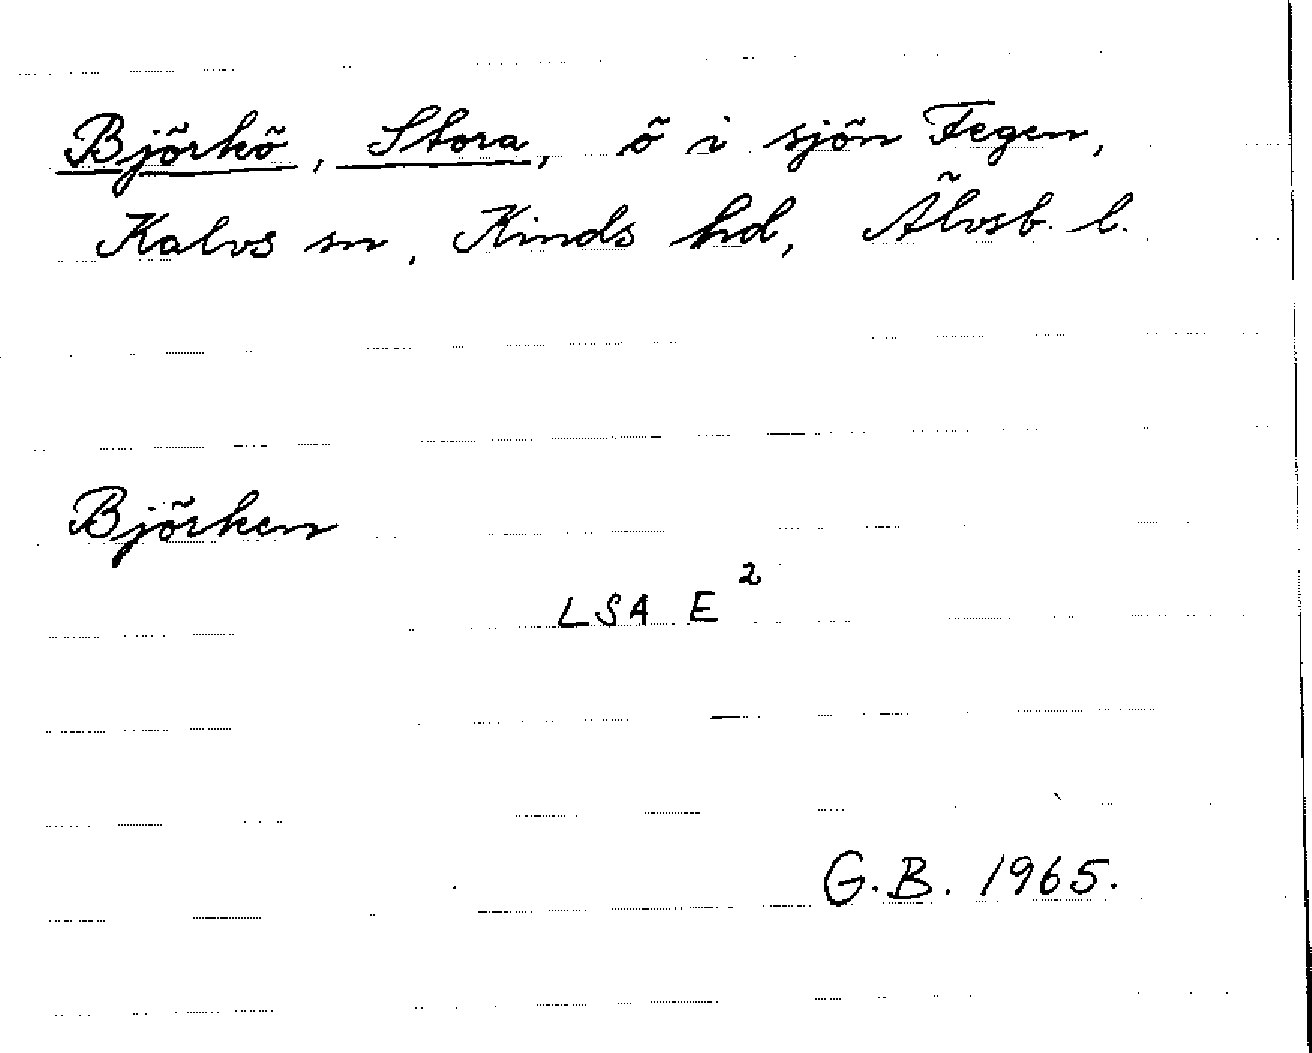 Björkö, Stora, ö i sjön Fegen,
Kalvs sn, Kinds hd, Älvsb. l.
Björken
LSA E²
G.B. 1965.